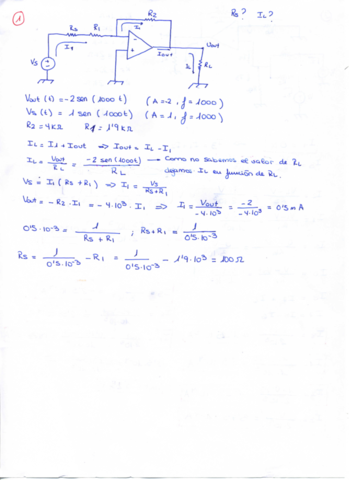 1
Rs? IL?
Rs R1 R2 I1 I1
Vs - + Iout Vout IL RL
Vout (t) = -2 sen (1000 t) (A = -2, f = 1000)
Vs (t) = 1 sen (1000 t) (A = 1, f = 1000)
R2 = 4KΩ R1 = 1'9 KΩ
IL = I1 + Iout ⇒ Iout = IL - I1
IL = Vout / RL = -2 sen (1000t) / RL → Como no sabemos el valor de RL
dejamos IL en función de RL.
Vs = I1 (Rs + R1) ⇒ I1 = Vs / Rs + R1
Vout = -R2 · I1 = -4·10³ · I1 ⇒ I1 = Vout / -4·10³ = -2 / -4·10³ = 0'5 m A
0'5·10⁻³ = 1 / Rs + R1 ; Rs + R1 = 1 / 0'5·10⁻³
Rs = 1 / 0'5·10⁻³ - R1 = 1 / 0'5·10⁻³ - 1'9·10³ = 100 Ω